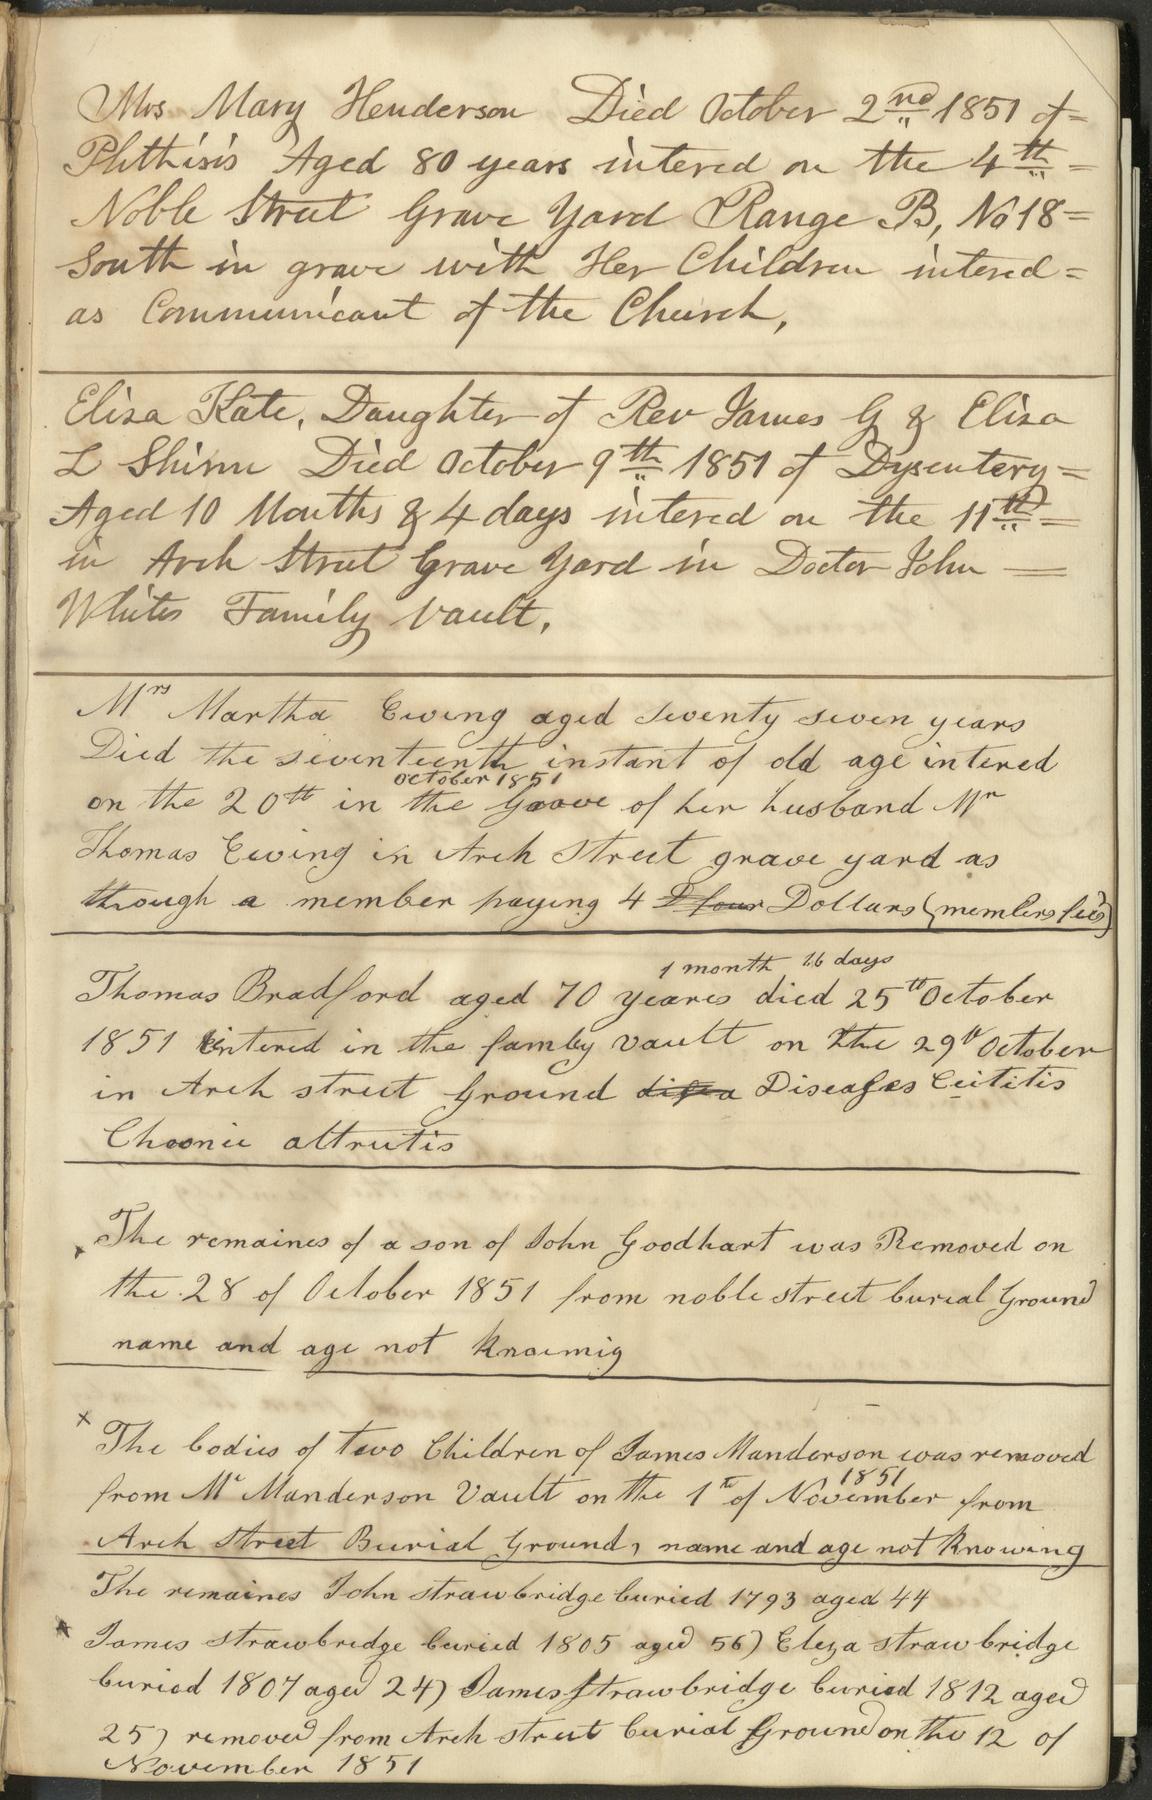 Mrs Mary Henderson Died October 2nd 1851 of=
Phthisis Aged 80 years intered on the 4th=
Noble Street Grave Yard Range B, No 18=
South in grave with Her Children intered=
as Communicant of the Church,
Eliza Kate, Daughter of Rev James G & Eliza
L Shinn Died October 9th 1851 of Dysentery=
Aged 10 Months & 4 days intered on the 11th=
in Arch Street Grave Yard in Doctor John =
Whites Family Vault,
Mrs Martha Ewing aged seventy seven years
Died the seventeenth instant of old age intered
october 1851
on the 20th in the Graave of her husband Mr
Thomas Ewing in Arch Street grave yard as
through a member paying 4 D four Dollars (members fees)
1 month 16 days
Thomas Bradford aged 70 yeares died 25th October
1851 intered in the famly vault on the 29th October
in Arch street Ground disea Diseases
Choonic
The remaines of a son of John Goodhart was Removed on
the 28 of October 1851 from noble street burial Ground
name and age not
x
The bodies of two Children of James Manderson was removed
1851
from Mr Manderson Vault on the 1th of November from
Arch Street Burial Ground, name and age not Knowing
The remaines John strawbridge buried 1793 aged 44
x James strawbredge buried 1805 aged 56) Eleza strawbridge
buried 1807 aged 24) James strawbridge buried 1812 aged
25) removed from Arch street burial Ground on the 12 of
November 1851